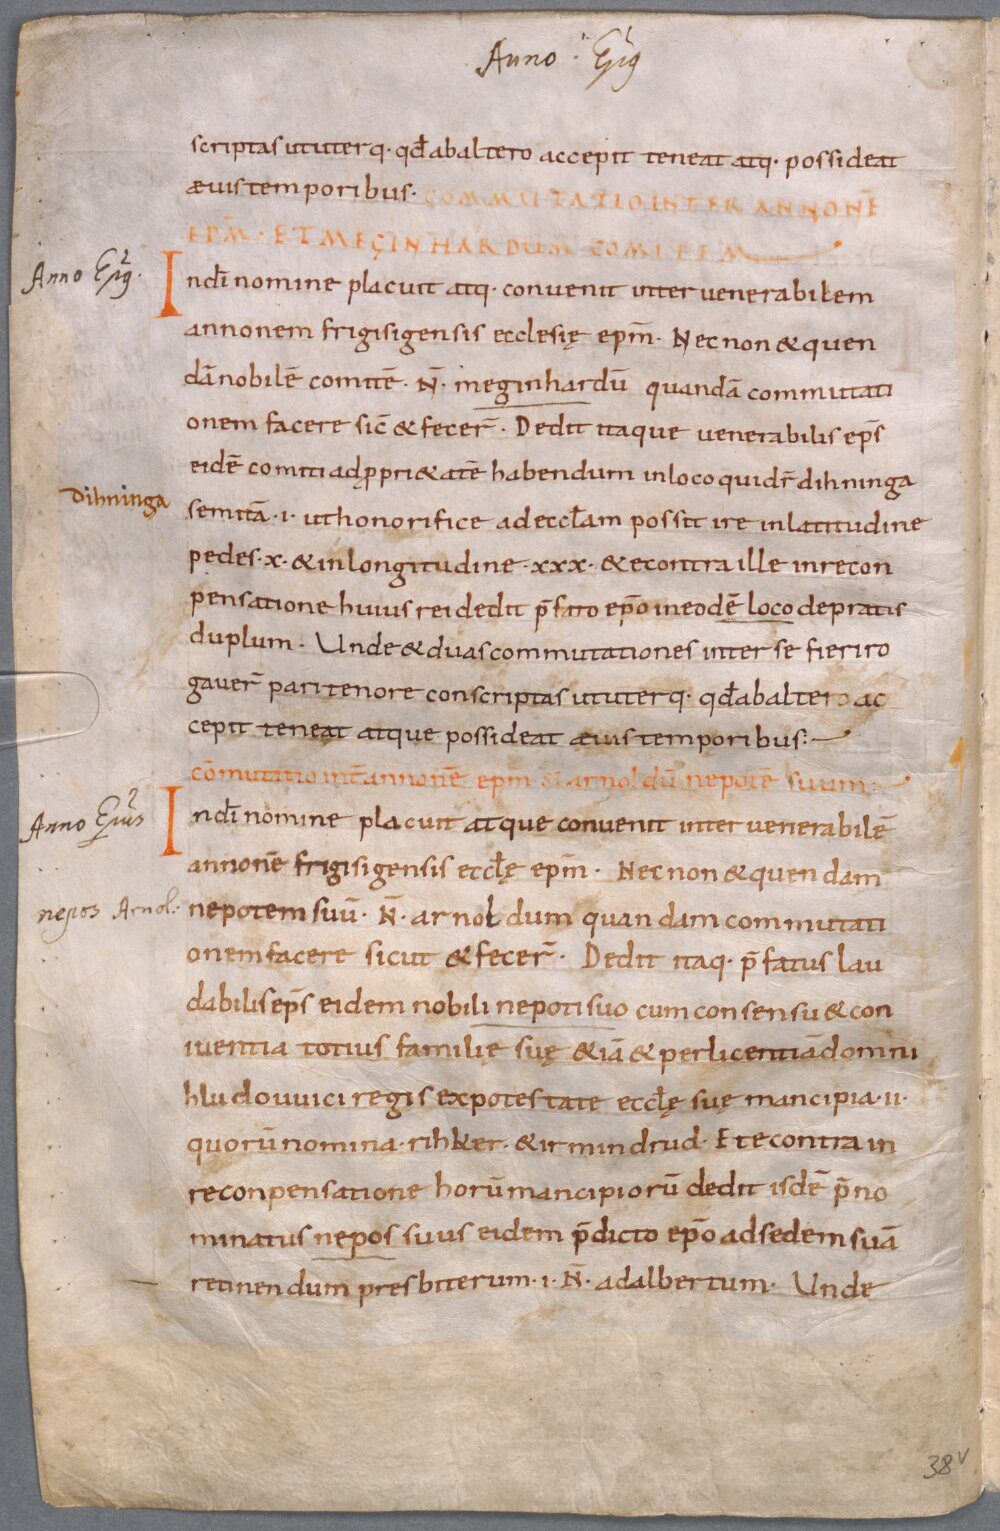 Anno Epꝰ
scriptas ut uterq· qđ ab altero accepit teneat atq· possideat
æuis temporibus· COMMUTATIO INTER ANNONĒ
EPM̄· ET MEGINHARDUM COMITEM
Anno Epꝰ·
Indī nomine placuit atq· convenit inter venerabilem
annonem frigisigensis ecclesię epm̄· Nec non & quen
dā nobilē comitē· N̄· meginhardū quandā commutati
onem facere sic̄ & fecer̄· Dedit itaque venerabilis ep̄s
eidē comiti ad ꝓpri&atē habendum in loco qui dr̄ dihninga
Dihninga
semitā ·i· ut honorifice ad eccłam possit ire in latitudine
pedes ·x· & in longitudine ·xxx· & econtra ille in recon
pensatione huius rei dedit p̄fato ep̄o in eodē loco de pratis
duplum· Unde & duas commutationes inter se fieri ro
gaver̄ pari tenore conscriptas ut uterq· qđ ab altero ac
cepit teneat atque possideat æuis temporibus:
cōmutatio int̄ annonē epm̄ & arnoldū nepotē suum:
Anno Eius
Indī nomine placuit atque convenit inter venerabilē
annonē frigisigensis eccłę epm̄· Nec non & quendam
nepos Arnol:
nepotem suū· N̄· arnoldum quandam commutati
onem facere sicut & fecer̄· Dedit itaq· p̄fatus lau
dabilis ep̄s eidem nobili nepoti suo cum consensu & con
iventia totius familię suę & iā & per licentiā domni
hludouuici regis ex potestate eccłę suę mancipia ·ii·
quorū nomina· rihker· & irmindrud· Et econtra in
reconpensatione horū mancipiorū dedit isdē p̄no
minatus nepos suus eidem p̄dicto ep̄o ad sedem suā
retinendum presbiterum ·i· N̄· adalbertum· Unde
38v